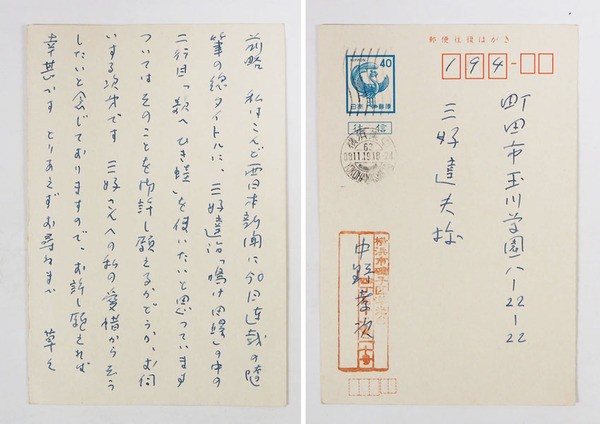 前略 私はこんど西日本新聞に50回連載の随
筆の総タイトルに、三好達治「鳴け四蟬」の中の
二行目「歎へひき蛙」を使いたいと思っています
ついてはそのことを御許し願えるかどうか、お伺
いする次第です 三好さんへの私の愛惜からそう
したいと念じておりますので、お許し願えれば
幸甚です とりあえずお尋ねまで 草々
郵便往復はがき
194-
町田市玉川学園八-22-22
三好達夫様
40
日本郵便
往信
62
中野孝次
横浜市